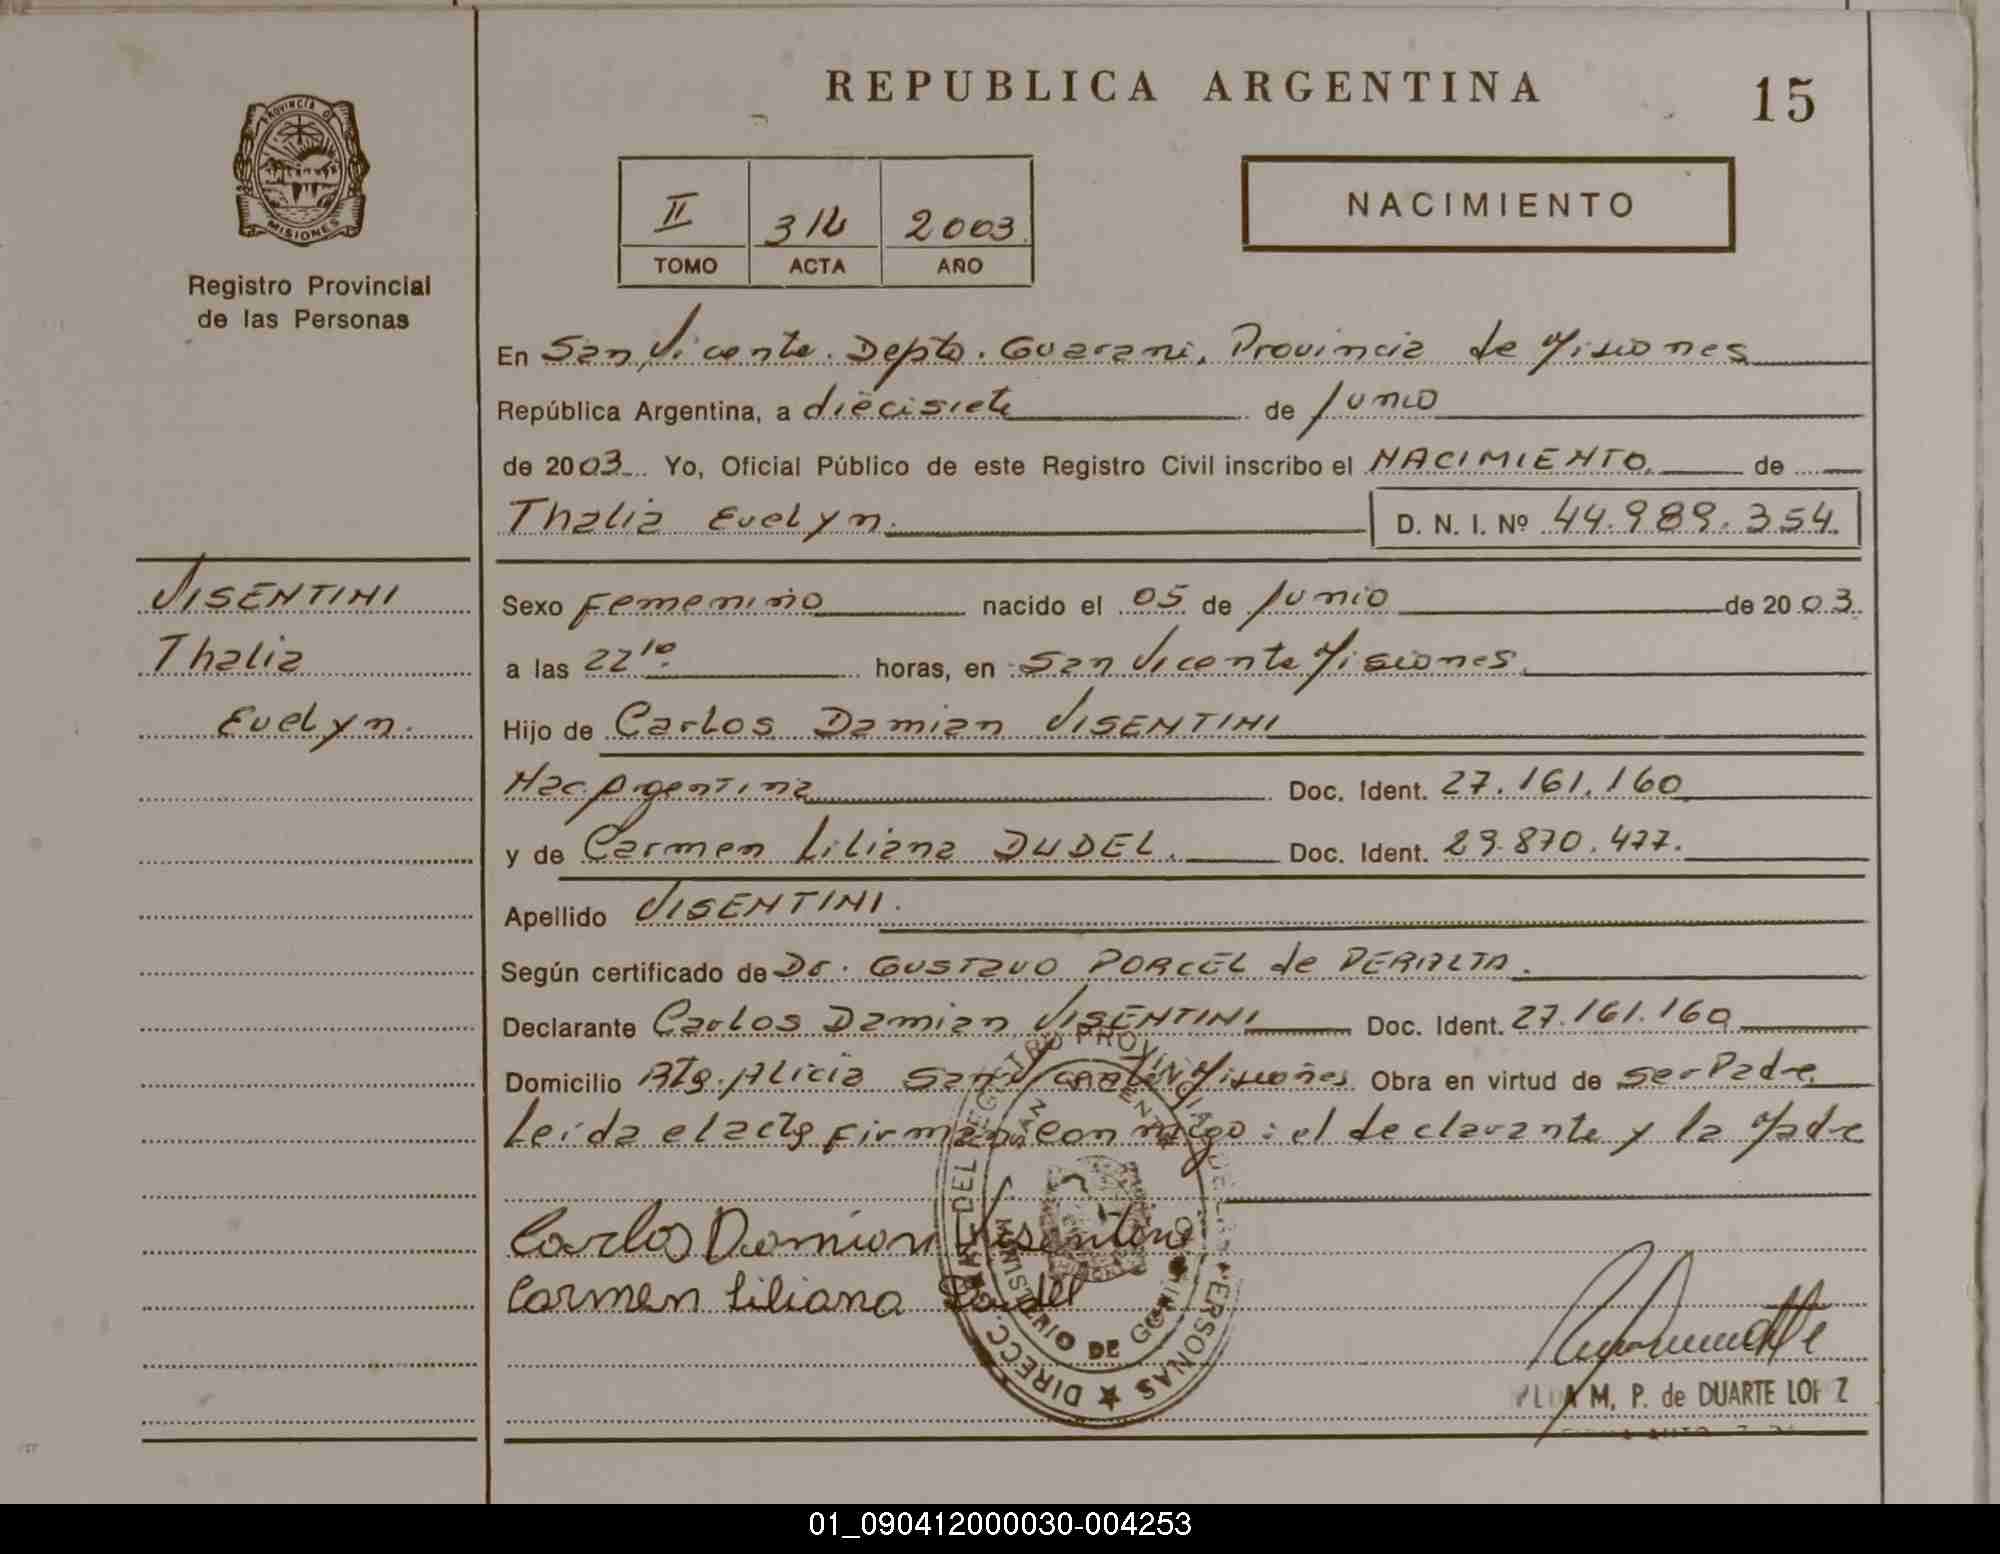 REPUBLICA ARGENTINA
15
PROVINCIA DE
MISIONES
Registro Provincial
de las Personas
II 2003
TOMO ACTA AÑO
NACIMIENTO
En San Vicente. Depto. Guarani, Provincia de Misiones
República Argentina, a diecisiete de Junio
de 2003 Yo, Oficial Público de este Registro Civil inscribo el NACIMIENTO de
Thalia Evelyn. D. N. I. Nº 44.989.354.
VISENTINI
Thalia
Evelyn.
Sexo Femenino nacido el 05 de Junio de 2003.
a las 22 10. horas, en San Vicente Misiones.
Hijo de Carlos Damian VISENTINI
Nac. Argentina Doc. Ident. 27.161.160
y de Carmen Liliana DUDEL. Doc. Ident. 29.870.477.
Apellido VISENTINI.
Según certificado de Dr. GUSTAVO PORCEL de PERALTA.
Declarante Carlos Damian VISENTINI Doc. Ident. 27.161.160
Domicilio Alicia San Vicente Misiones Obra en virtud de ser Padre
Leida el acta firman conmigo: el declarante y la Madre
Carlos Damion Visentini
Carmen Liliana Dudel
DIRECC. GRAL. DEL REGISTRO PROVINCIAL DE LAS PERSONAS
MINISTERIO DE GOBIERNO
SAN VICENTE
M. P. de DUARTE LOPEZ
01_090412000030-004253